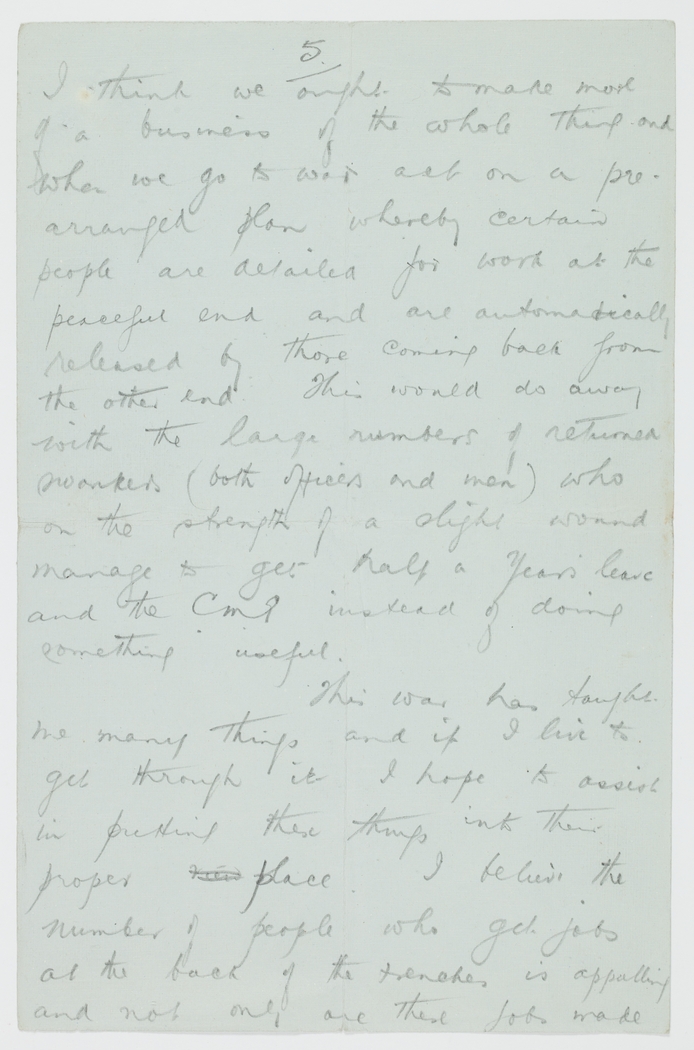 5.
I think we ought to make more
of a business of the whole thing and
when we go to war act on a pre-
arranged plan whereby certain
people are detailed for work at the
peaceful end and are automatically
released by those coming back from
the other end. This would do away
with the large numbers of returned
swankers (both officers and men) who
on the strength of a slight wound
manage to get half a years leave
and the CMG instead of doing
something useful.
This war has taught
me many things and if I live to
get through it I hope to assist
in putting these things into their
proper place. I believe the
number of people who get jobs
at the back of the trenches is appalling
and not only are these jobs made